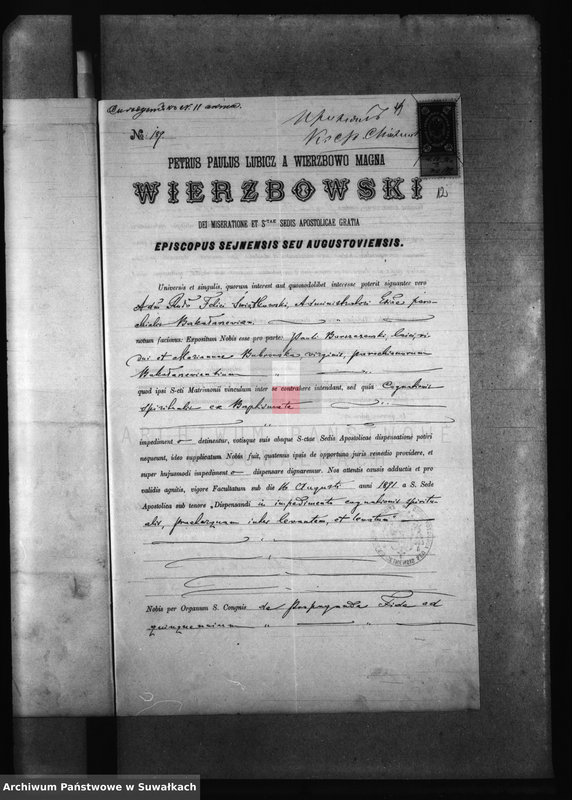 № 107.
PETRUS PAULUS LUBICZ A WIERZBOWO MAGNA
WIERZBOWSKI
DEI MISERATIONE ET Sᵀᴬᴱ SEDIS APOSTOLICAE GRATIA
EPISCOPUS SEJNENSIS SEU AUGUSTOVIENSIS.
Universis et singulis, quorum interest aut quomodolibet interesse poterit signanter vero
Felici Świątkowski, Administratori Eccae paro-
chialis Bakałarzewien.
notum facimus: Expositum Nobis esse pro parte: Pauli
et Mariannae Bukowska, virginis, parochianorum
Bakałarzewiensium
quod ipsi S-cti Matrimonii vinculum inter se contrahere intendant, sed quia Cognationis
spiritualis ex Baptismate
impediment o detinentur, votisque suis absque S-ctae Sedis Apostolicae dispensatione potiri
nequeunt, ideo supplicatum Nobis fuit, quatenus ipsis de opportuno juris remedio providere, et
super hujusmodi impediment o dispensare dignaremur. Nos attentis causis adductis et pro
validis agnitis, vigore Facultatum sub die 16 Augusti anni 1891 a S. Sede
Apostolica sub tenore „Dispensandi in impedimento cognationis spiritu-
alis, praeterquam inter levantem, et levatum"
Nobis per Organum S. Congnis de Propaganda Fide ad
quinquennium
Archiwum Państwowe w Suwałkach